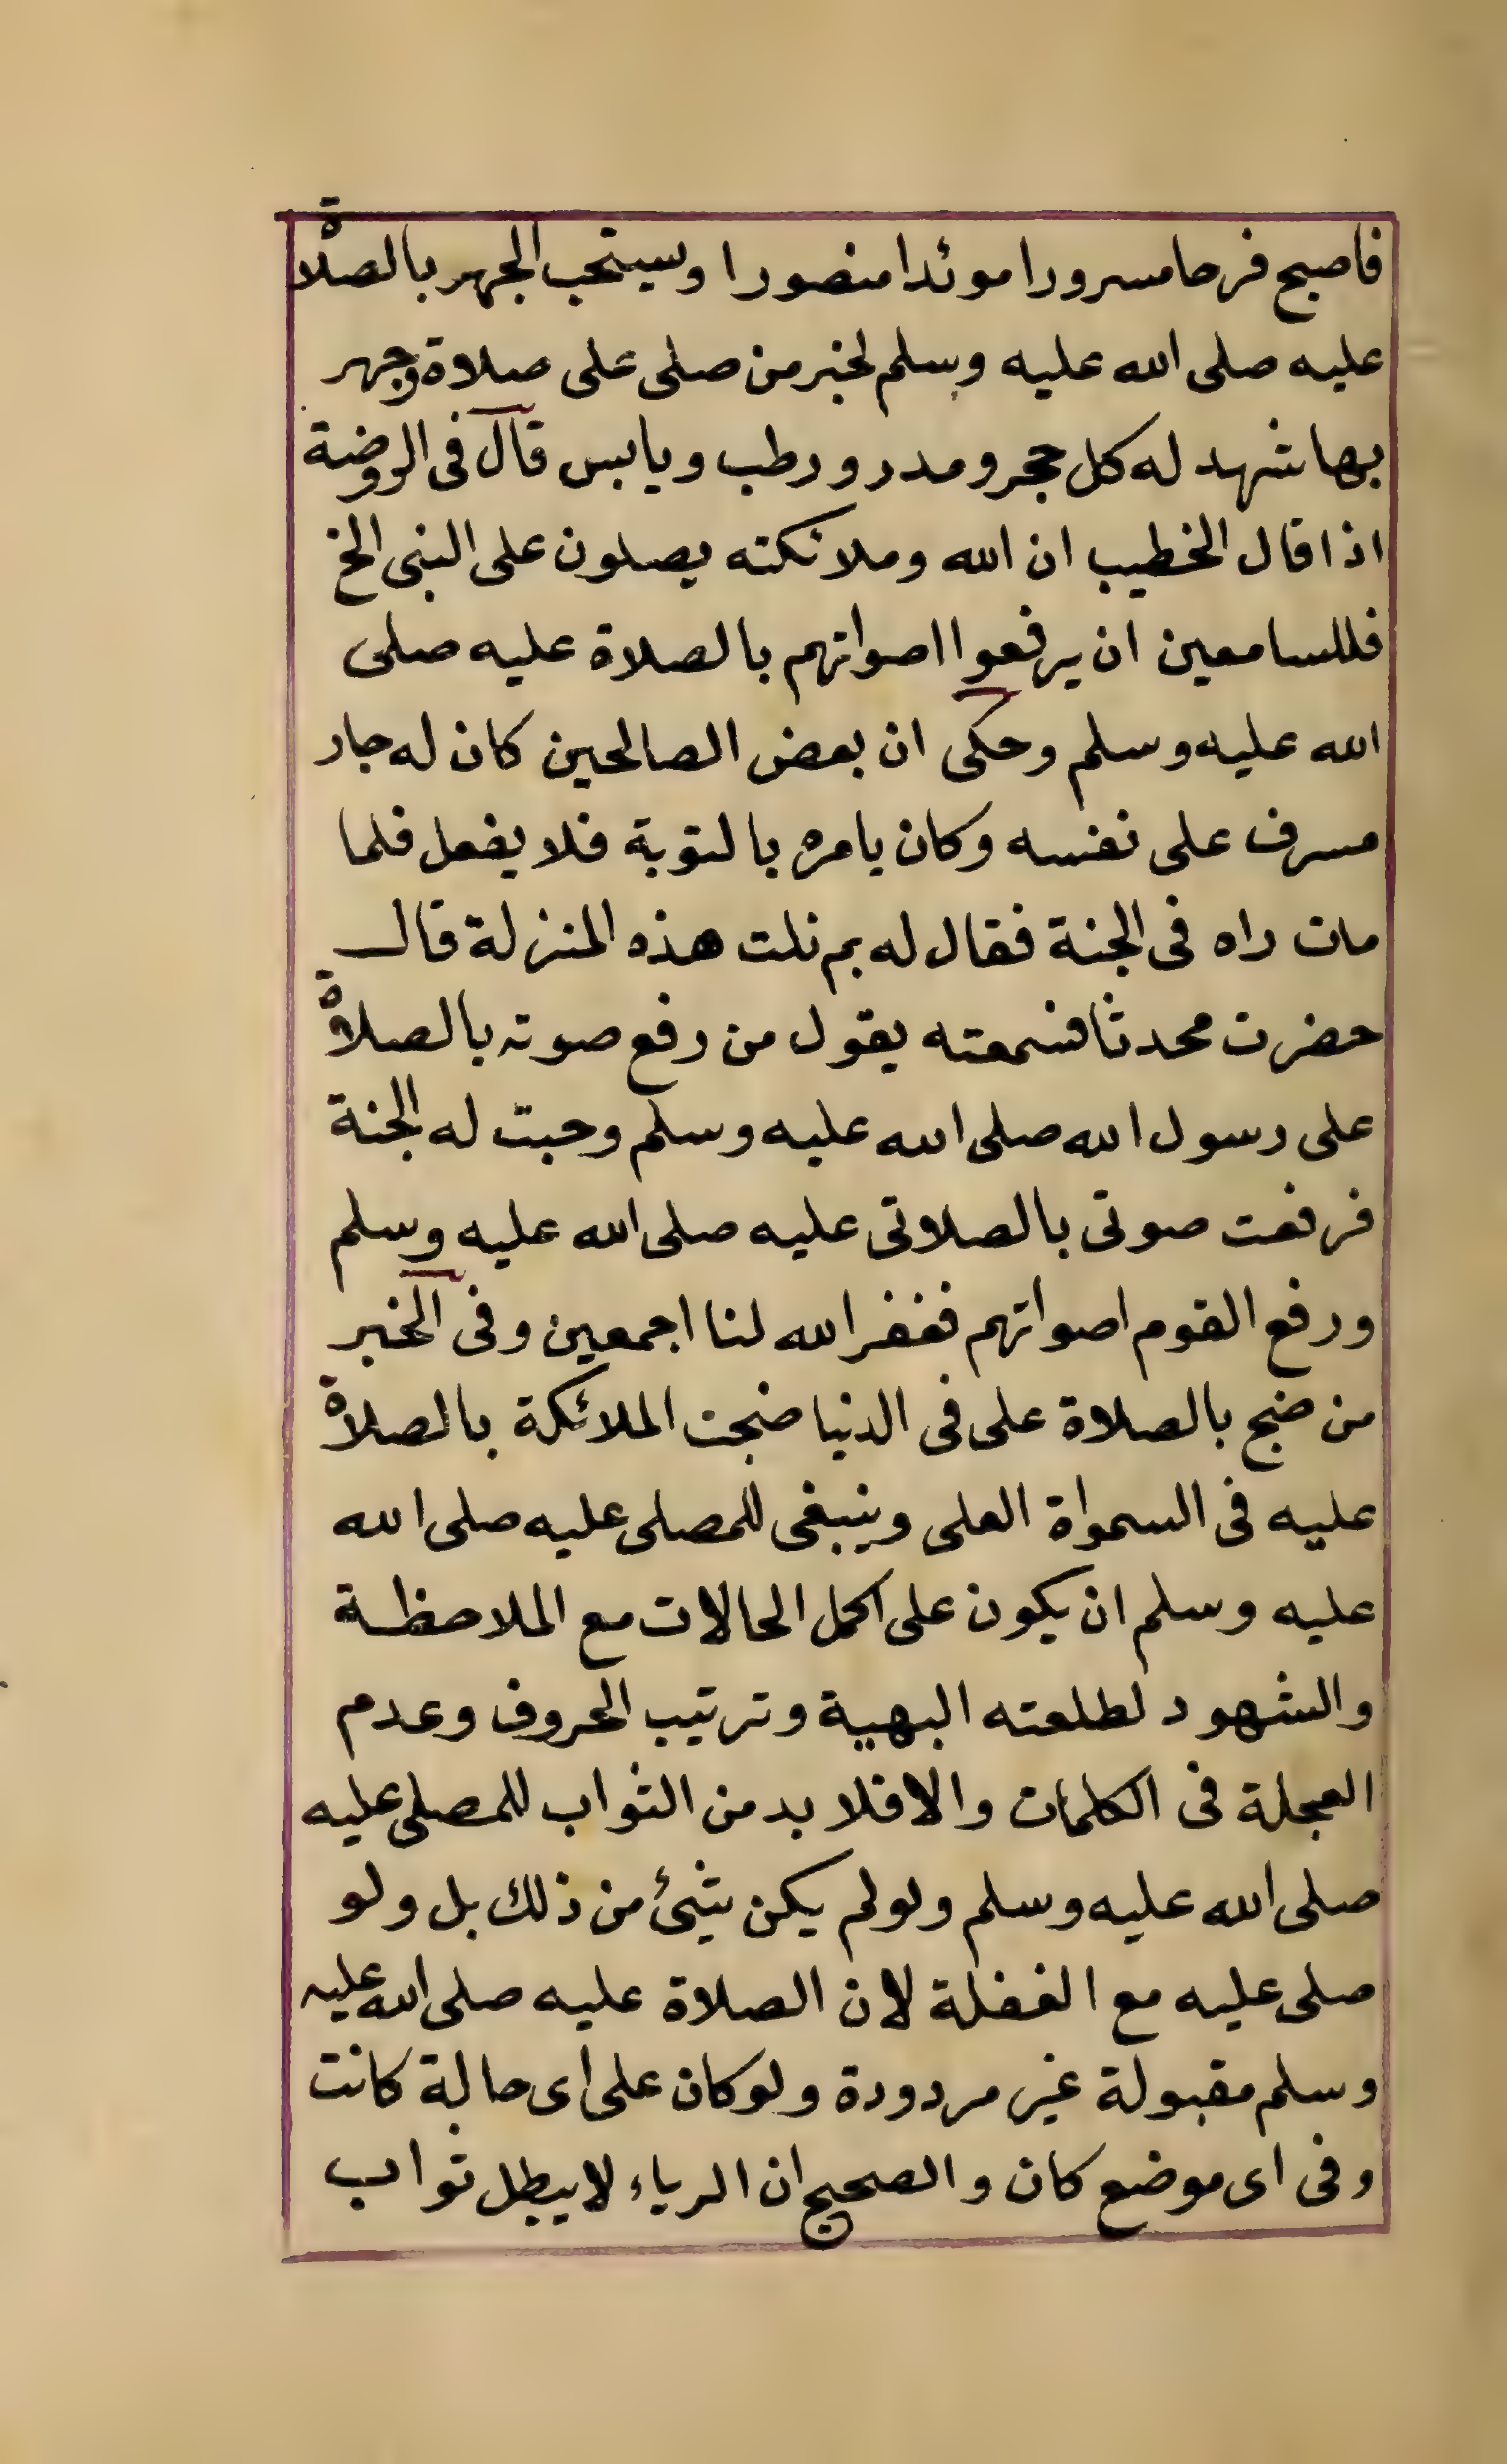 فاصبح فرحا مسرورا موئدا منصورا ويستحب الجهر بالصلاة
عليه صلى الله عليه وسلم لخبر من صلى على صلاة وجهر
بها شهد له كل حجر ومدر ورطب ويابس قال فى الروضة
اذا قال الخطيب ان الله وملائكته يصلون على النبى الخ
فللسامعين ان يرفعوا اصواتهم بالصلاة عليه صلى
الله عليه وسلم وحكى ان بعض الصالحين كان له جار
مسرف على نفسه وكان يامره بالتوبة فلا يفعل فلما
مات راه فى الجنة فقال له بم نلت هذه المنزلة قال
حضرت محدثا فسمعته يقول من رفع صوته بالصلاة
على رسول الله صلى الله عليه وسلم وجبت له الجنة
فرفعت صوتى بالصلاتى عليه صلى الله عليه وسلم
ورفع القوم اصواتهم فغفر الله لنا اجمعين وفى الخبر
من ضج بالصلاة على فى الدنيا ضجت الملائكة بالصلاة
عليه فى السمواة العلى وينبغى للمصلى عليه صلى الله
عليه وسلم ان يكون على اكمل الحالات مع الملاحظة
والشهود لطلعته البهية وترتيب الحروف وعدم
العجلة فى الكلمات والا فلا بد من الثواب للمصلى عليه
صلى الله عليه وسلم ولو لم يكن شيئ من ذلك بل ولو
صلى عليه مع الغفلة لان الصلاة عليه صلى الله عليه
وسلم مقبولة غير مردودة ولو كان على اى حالة كانت
وفى اى موضع كان والصحيح ان الرياء لا يبطل ثواب